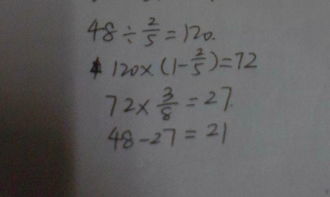 48 ÷ 2/5 = 120.
120 × (1 - 2/5) = 72
72 × 3/8 = 27.
48 - 27 = 21